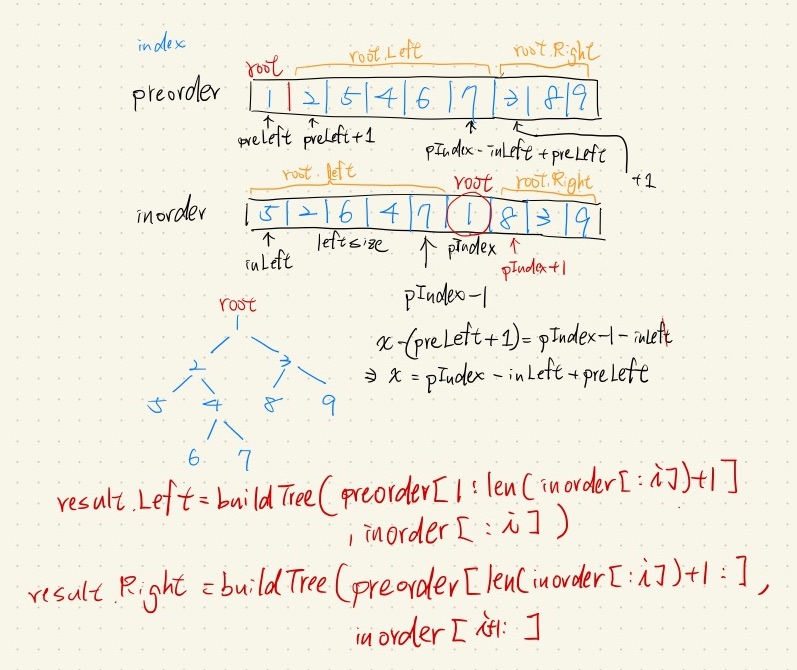 index
root root.Left root.Right
preorder 1 2 5 4 6 7 3 8 9
preLeft preLeft+1 pIndex-inLeft+preLeft +1
root.left root root.Right
inorder 5 2 6 4 7 1 8 3 9
inLeft leftsize pIndex pIndex+1
pIndex-1
root
1
2 3
5 4 8 9
6 7
x-(preLeft+1)=pIndex-1-inLeft
⇒ x=pIndex-inLeft+preLeft
result.Left=buildTree(preorder[1:len(inorder[:i])+1]
,inorder[:i])
result.Right=buildTree(preorder[len(inorder[:i])+1:],
inorder[i+1:]